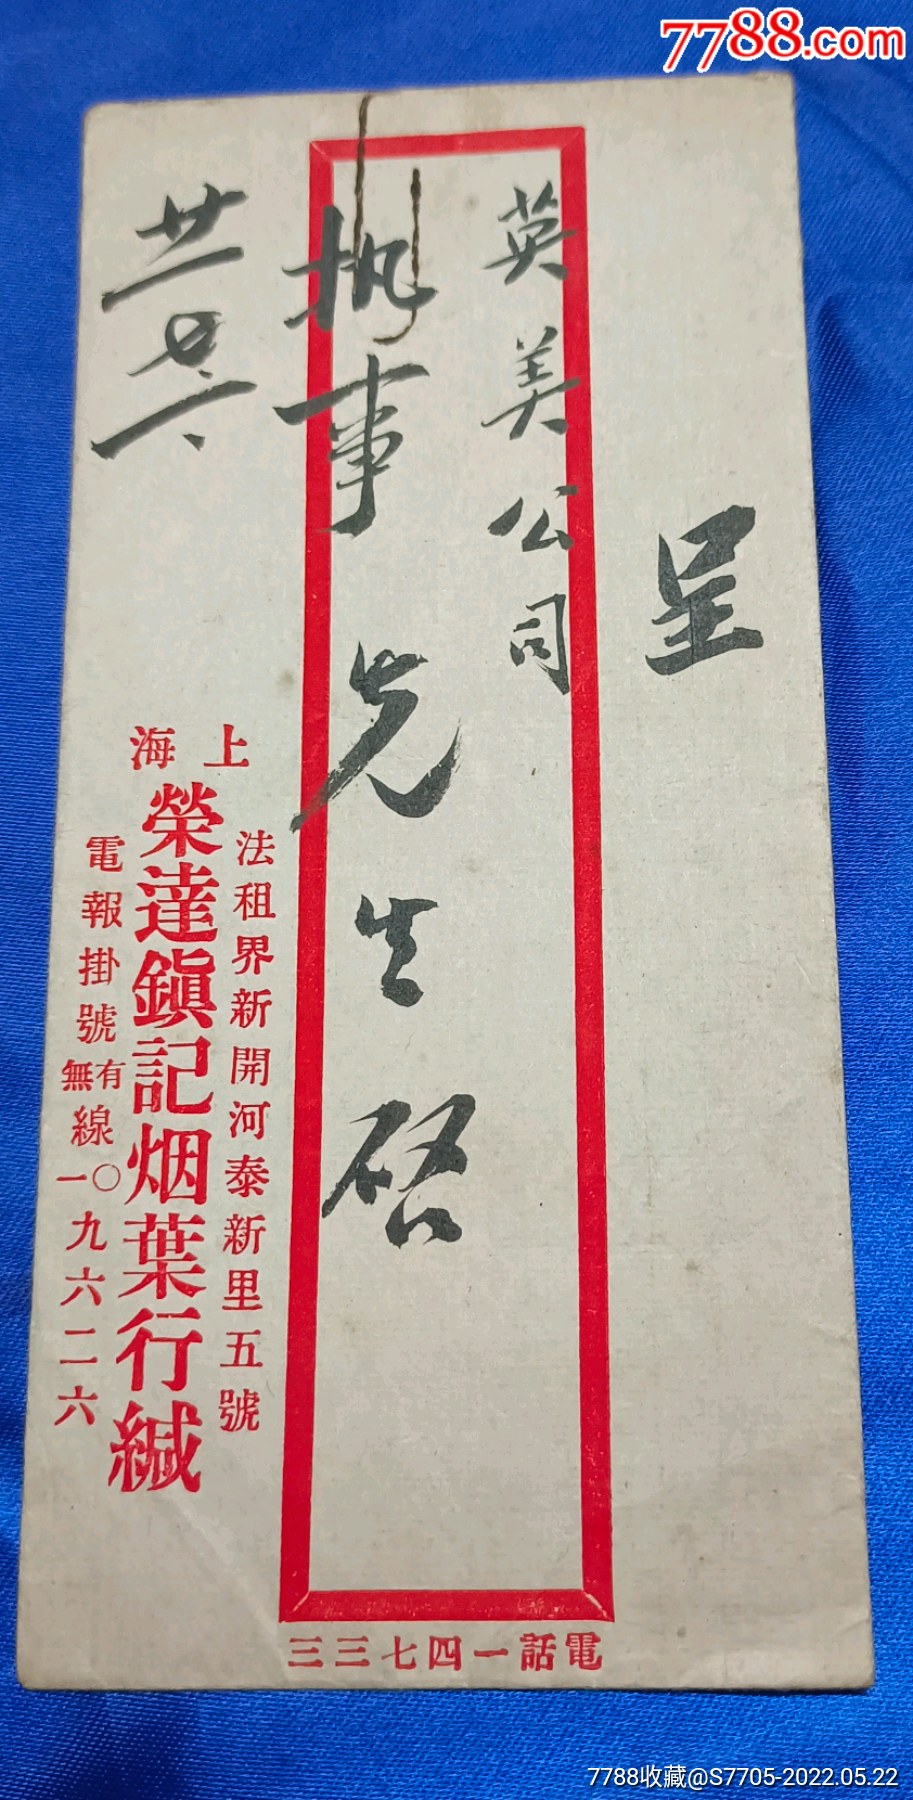 7788.com
呈
英美公司
执事先生啓
上海
法租界新開河泰新里五號
榮達鎮記烟葉行緘
電報掛號有無線〇一九六二六
電話一四七三三
7788收藏@S7705-2022.05.22